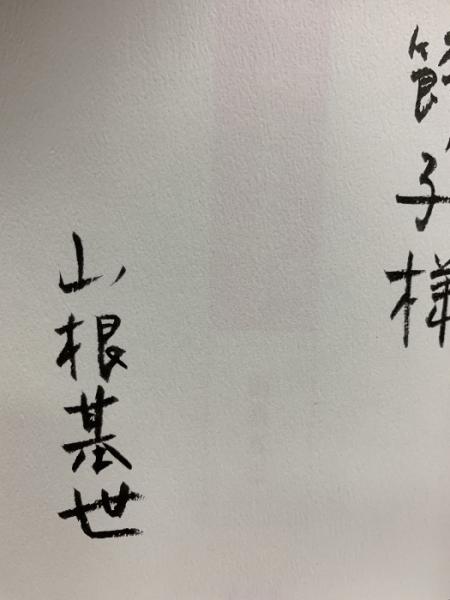 節子様
山根基世